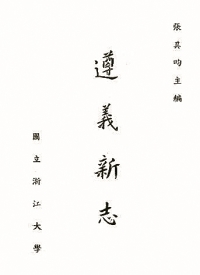 張其昀主編
遵義新志
國立浙江大學